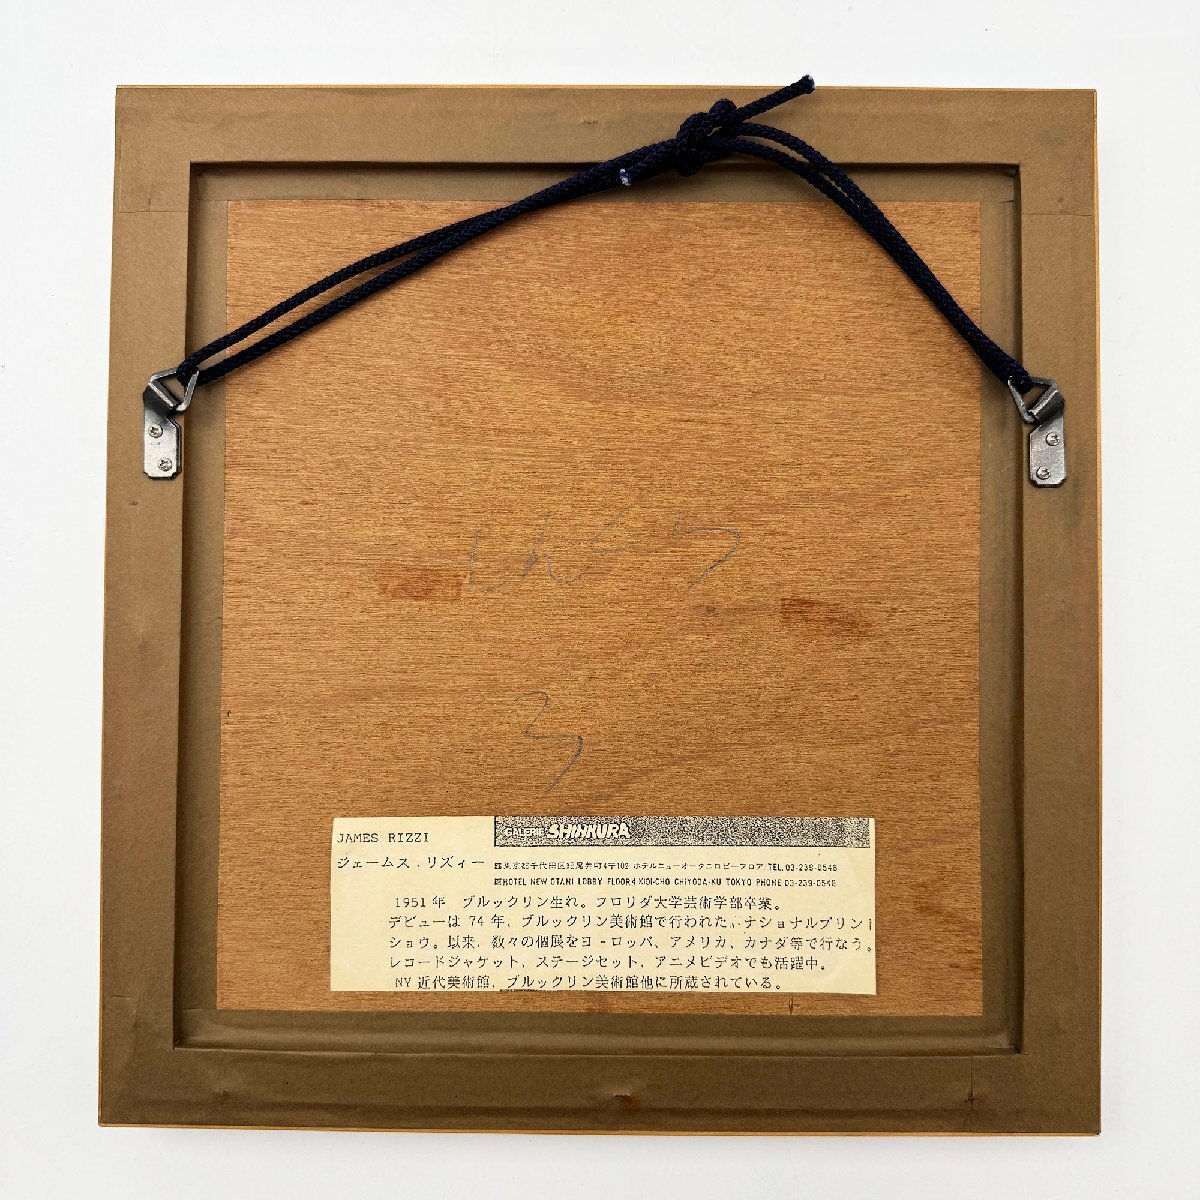 JAMES RIZZI
ジェームス．リズィー
GALERIE SHINKURA
東京都千代田区紀尾井町4〒102 ホテルニューオータニロビーフロア TEL.03-239-0546
HOTEL NEW OTANI LOBBY FLOOR 4 KIOI-CHO CHIYODA-KU TOKYO PHONE 03-239-0546
1951年 ブルックリン生れ。フロリダ大学芸術学部卒業。
デビューは 74年、ブルックリン美術館で行われた、ナショナルプリント
ショウ。以来、数々の個展をヨーロッパ、アメリカ、カナダ等で行なう。
レコードジャケット、ステージセット、アニメビデオでも活躍中。
NY近代美術館、ブルックリン美術館他に所蔵されている。